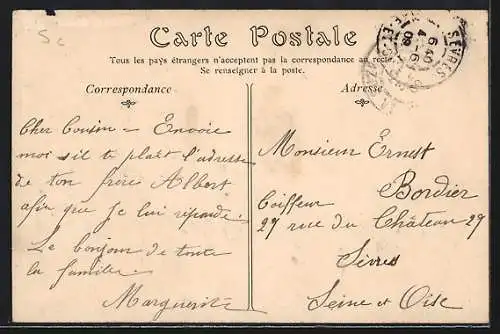 Sc
Carte Postale
Tous les pays étrangers n'acceptent pas la correspondance au recto
Se renseigner à la poste.
Correspondance
Adresse
SÈVRES
6 40
4 - 6
09
Cher Cousin - Envoie
moi s'il te plaît l'adresse
de ton frère Albert
afin que je lui réponde.
Le bonjour de toute
la famille.
Marguerite
Monsieur Ernest
Bordier
Coiffeur
27 rue du Château 27
Sèvres
Seine et Oise